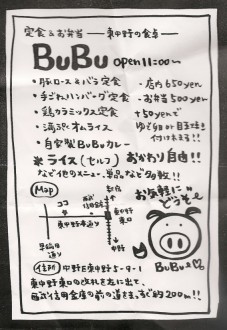 定食&お弁当 ―東中野の食卓―
BuBu open 11:00〜
・豚ロース&バラ定食 ・店内650yen
・手ごねハンバーグ定食 ・お弁当500yen
・鶏カラミックス定食 +50yenで
・満ぷくオムライス ゆで卵or目玉焼き
・自家製BuBuカレー 付けれます!!
※ライス(セルフ)おかわり自由!!
など他のメニュー、単品など多数!!
Map
お気軽に
どうぞ
新宿
ココ
西武信用金庫
東中野
東口
東中野本通り
早稲田
通り
中野
BuBu
住所 中野区東中野5-9-1
東中野東口の改札を左に出て、
西武信用金庫の前の道をまっすぐ約200m!!